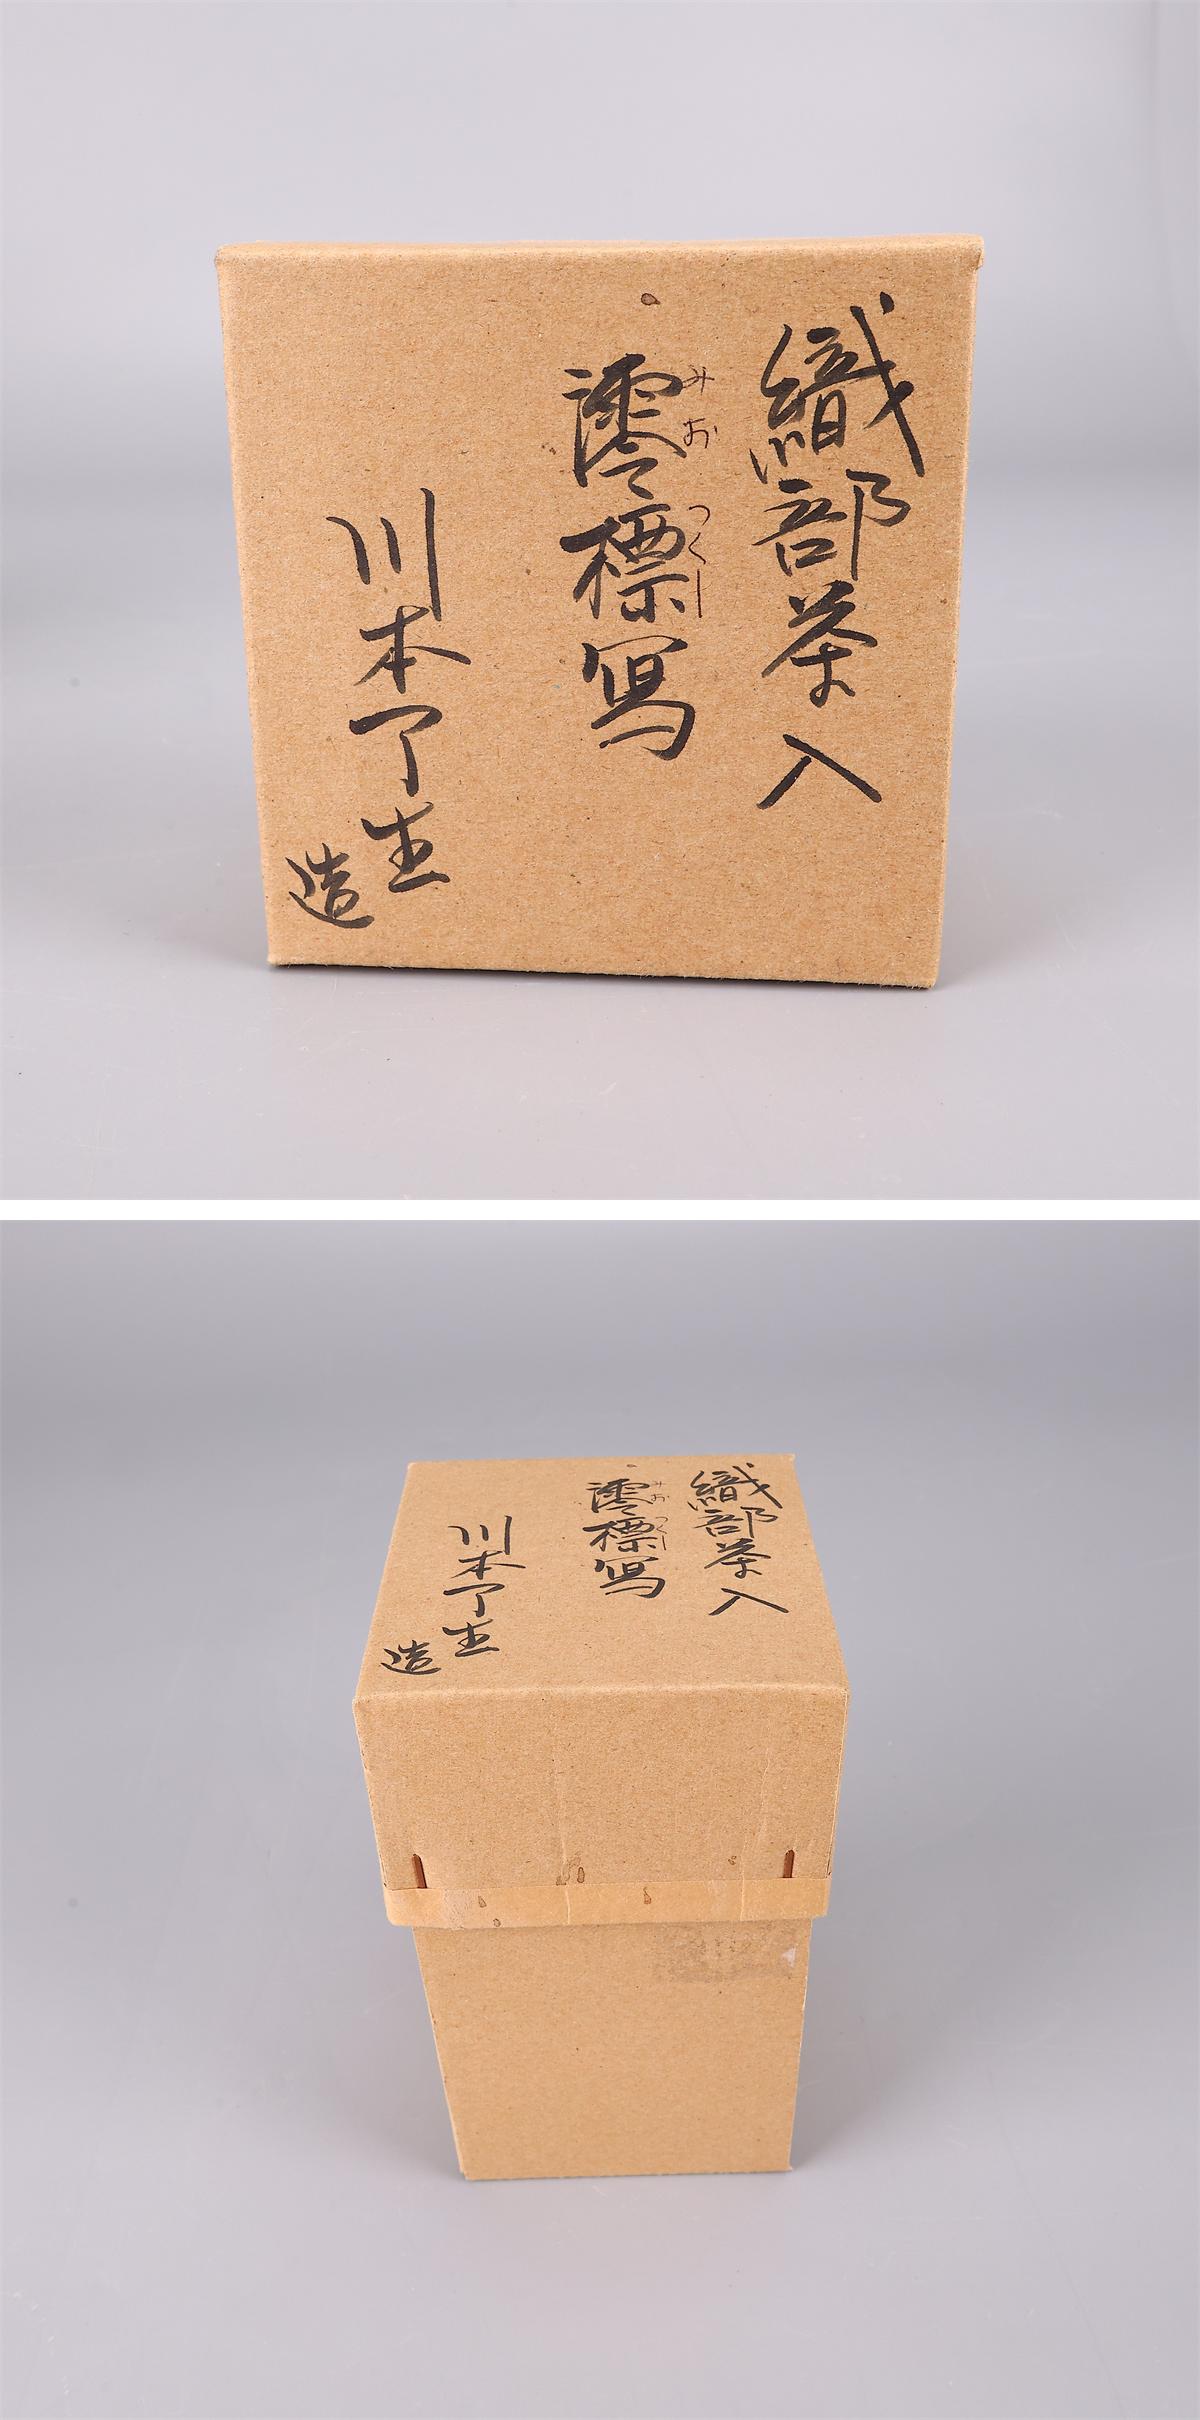 織部茶入
澪標寫
みおつくし
川本了生
造
織部茶入
澪標寫
みおつくし
川本了生
造